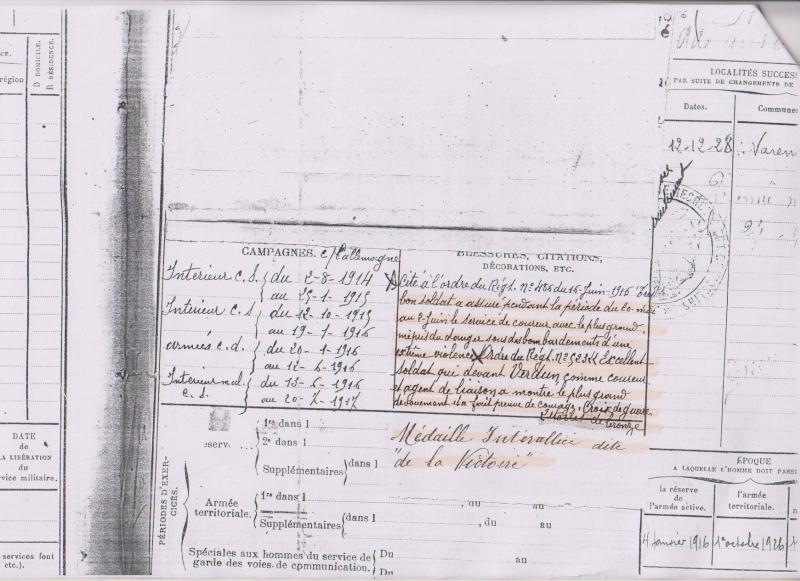 CE.
région
D DOMICILE.
R RÉSIDENCE.
DATE
de
LA LIBÉRATION
du
service militaire.
services font
etc.).
CAMPAGNES. c/ l'allemagne
Intérieur C.S. du 2-8-1914
au 25-1-1915
Intérieur C.S du 12-10-1915
au 19-1-1916
armées c.d. du 20-1-1916
au 12-6-1916
Intérieur mal. du 13-6-1916
C.S. au 20-7-1917
BLESSURES, CITATIONS,
DÉCORATIONS, ETC.
Cité à l'ordre du Régt. N° 486 du 16 Juin 1916
bon soldat a assuré pendant la période du 20 mai
au 2 Juin le service de coureur avec le plus grand
mépris du danger sous des bombardements d'une
extrême violence. Ordre du Régt. N° 523 Excellent
soldat qui devant Verdun, comme coureur
et agent de liaison a montré le plus grand
dévouement et a fait preuve de courage. Croix de guerre
Etoile de bronze
Médaille Interalliée dite
"de la Victoire"
PÉRIODES D'EXERCICES.
réserv.
1re dans l
2e dans l
Supplémentaires dans l
Armée
territoriale.
1re dans l , du au
Supplémentaires dans l , du au
Spéciales aux hommes du service de
garde des voies de communication.
Du au
Du
LOCALITÉS SUCCESS
PAR SUITE DE CHANGEMENTS DE
Dates.
Commune
12-12-28
Varen
ÉPOQUE
A LAQUELLE L'HOMME DOIT PASSE
la réserve
de
l'armée active.
l'armée
territoriale.
1er octobre 1926